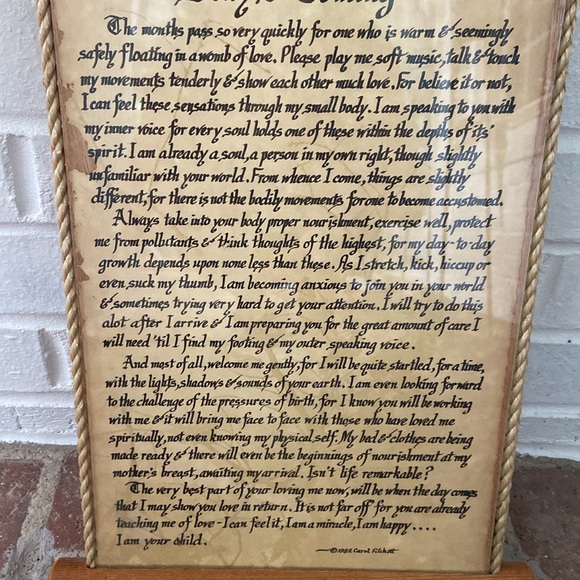 The months pass so very quickly for one who is warm & seemingly
safely floating in a womb of love. Please play me soft music, talk & touch
my movements tenderly & show each other much love. For believe it or not,
I can feel these sensations through my small body. I am speaking to you with
my inner voice for every soul holds one of these within the depths of its'
spirit. I am already a soul, a person in my own right, though slightly
unfamiliar with your world. From whence I come, things are slightly
different, for there is not the bodily movements for one to become accustomed.
Always take into your body proper nourishment, exercise well, protect
me from pollutants & think thoughts of the highest, for my day-to-day
growth depends upon none less than these. As I stretch, kick, hiccup or
even, suck my thumb, I am becoming anxious to join you in your world
& sometimes trying very hard to get your attention. I will try to do this
alot after I arrive & I am preparing you for the great amount of care I
will need 'til I find my footing & my outer speaking voice.
And most of all, welcome me gently, for I will be quite startled, for a time,
with the lights, shadows & sounds of your earth. I am even looking forward
to the challenge of the pressures of birth, for I know you will be working
with me & it will bring me face to face with those who have loved me
spiritually, not even knowing my physical self. My bed & clothes are being
made ready & there will even be the beginnings of nourishment at my
mother's breast, awaiting my arrival. Isn't life remarkable?
The very best part of your loving me now, will be when the day comes
that I may show you love in return. It is not far off for you are already
teaching me of love - I can feel it, I am a miracle, I am happy....
I am your child.
©1982 Carol